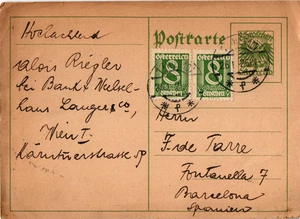 Hochachtend
Postkarte
Alois Riegler
bei Bank & Wechsel-
haus Langer & Co,
Wien I.
Kärntnerstrasse 59
Österreich
8
Groschen
Österreich
8
Groschen
Herrn
F. de Tarre
Fontanella 7
Barcelona
Spanien